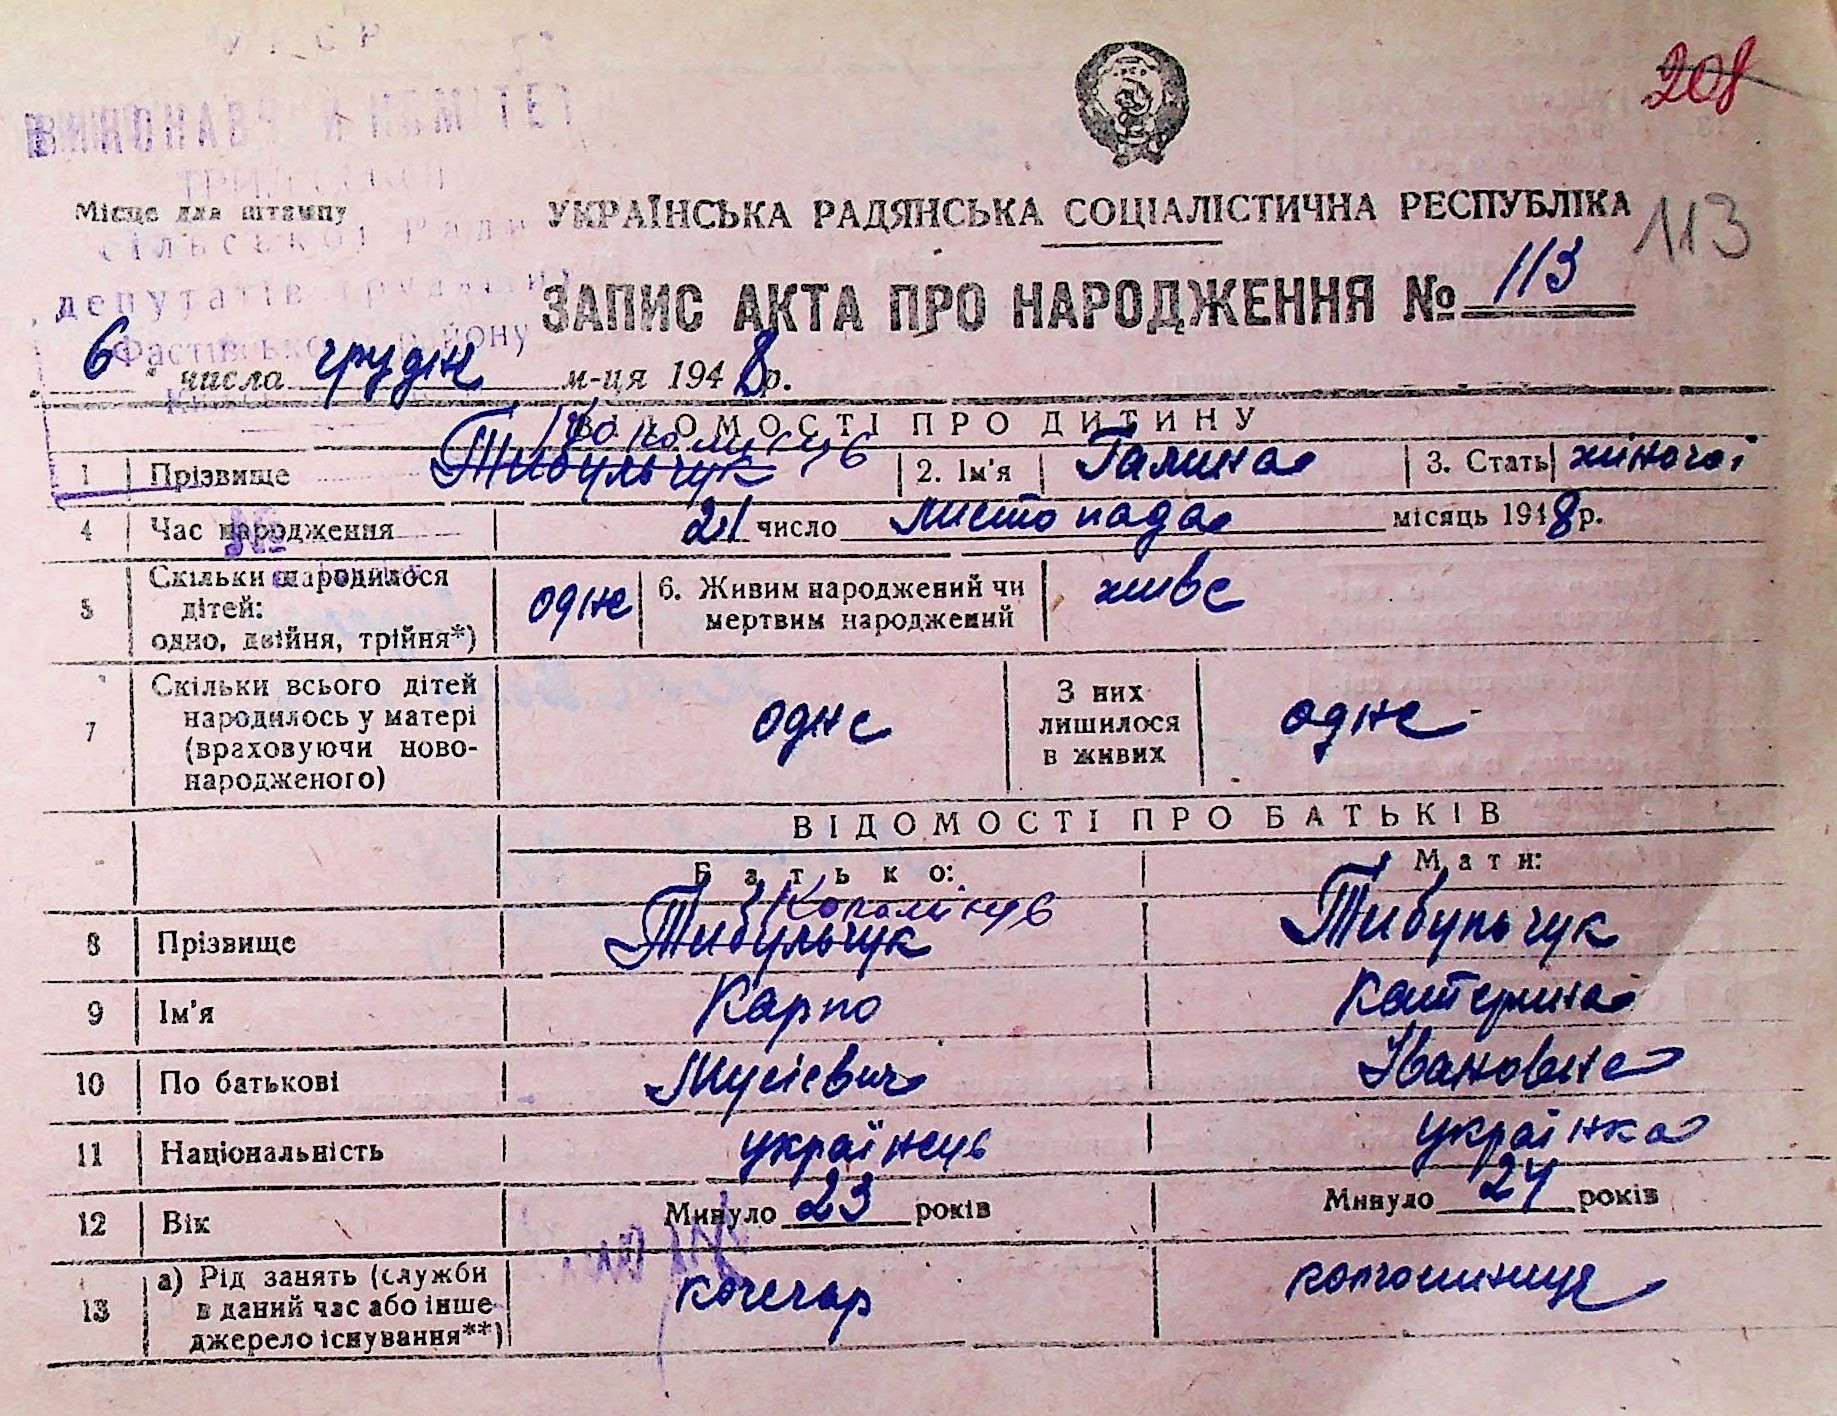 УРСР
ВИКОНАВЧИЙ КОМІТЕТ
208
Місце для штампу
УКРАЇНСЬКА РАДЯНСЬКА СОЦІАЛІСТИЧНА РЕСПУБЛІКА
113
сільської Ради
депутатів трудящих
Фастівського району
ЗАПИС АКТА ПРО НАРОДЖЕННЯ № 113
6 числа грудня м-ця 1948 р.
ВІДОМОСТІ ПРО ДИТИНУ
1 Прізвище Тибульчук 2. Ім'я Галина 3. Стать жіноча
4 Час народження 21 число листопада місяць 1948 р.
5 Скільки народилося
дітей:
одно, двійня, трійня*)
одне
6. Живим народжений чи
мертвим народжений
живе
7 Скільки всього дітей
народилось у матері
(враховуючи ново-
народженого)
одне
З них
лишилося
в живих
одне
ВІДОМОСТІ ПРО БАТЬКІВ
Батько: Мати:
8 Прізвище Тибульчук Тибульчук
9 Ім'я Карпо Катерина
10 По батькові Мусієвич Івановна
11 Національність українець українка
12 Вік Минуло 23 років Минуло 24 років
13 а) Рід занять (служби
в даний час або інше
джерело існування**)
кочегар колгоспниця